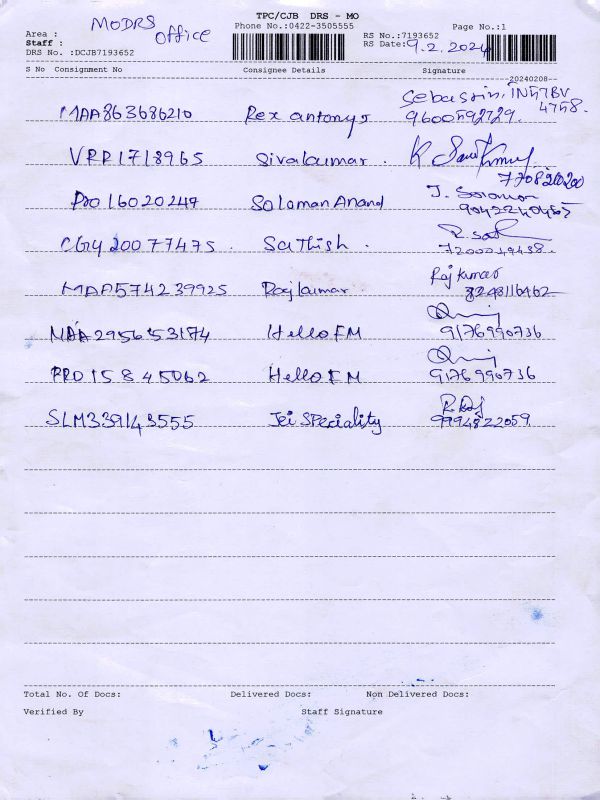 TPC/CJB DRS - MO
MODRS
Office
Phone No.:0422-3505555
Page No.:1
Area :
Staff :
DRS No. :DCJB7193652
RS No.:7193652
RS Date: 9.2.2024
S No Consignment No Consignee Details Signature
--20240208--
MAA863686210 Rex antonys Sebastin. TN57BV 4758.
9600592729.
VRR1718965 Sivakumar.
7708200200
PRO16020247 Soloman Anand J. Solomon
9042240465
CGY20077475. Sathish.
7200049438.
MAA574239925 Rajkumar Rajkumar
8248116462
MAA295653174 Hello FM
9176990736
PRO15845062 Hello FM
9176990736
SLM339143555 Jei SPeciality
9994822059.
Total No. Of Docs: Delivered Docs: Non Delivered Docs:
Verified By Staff Signature